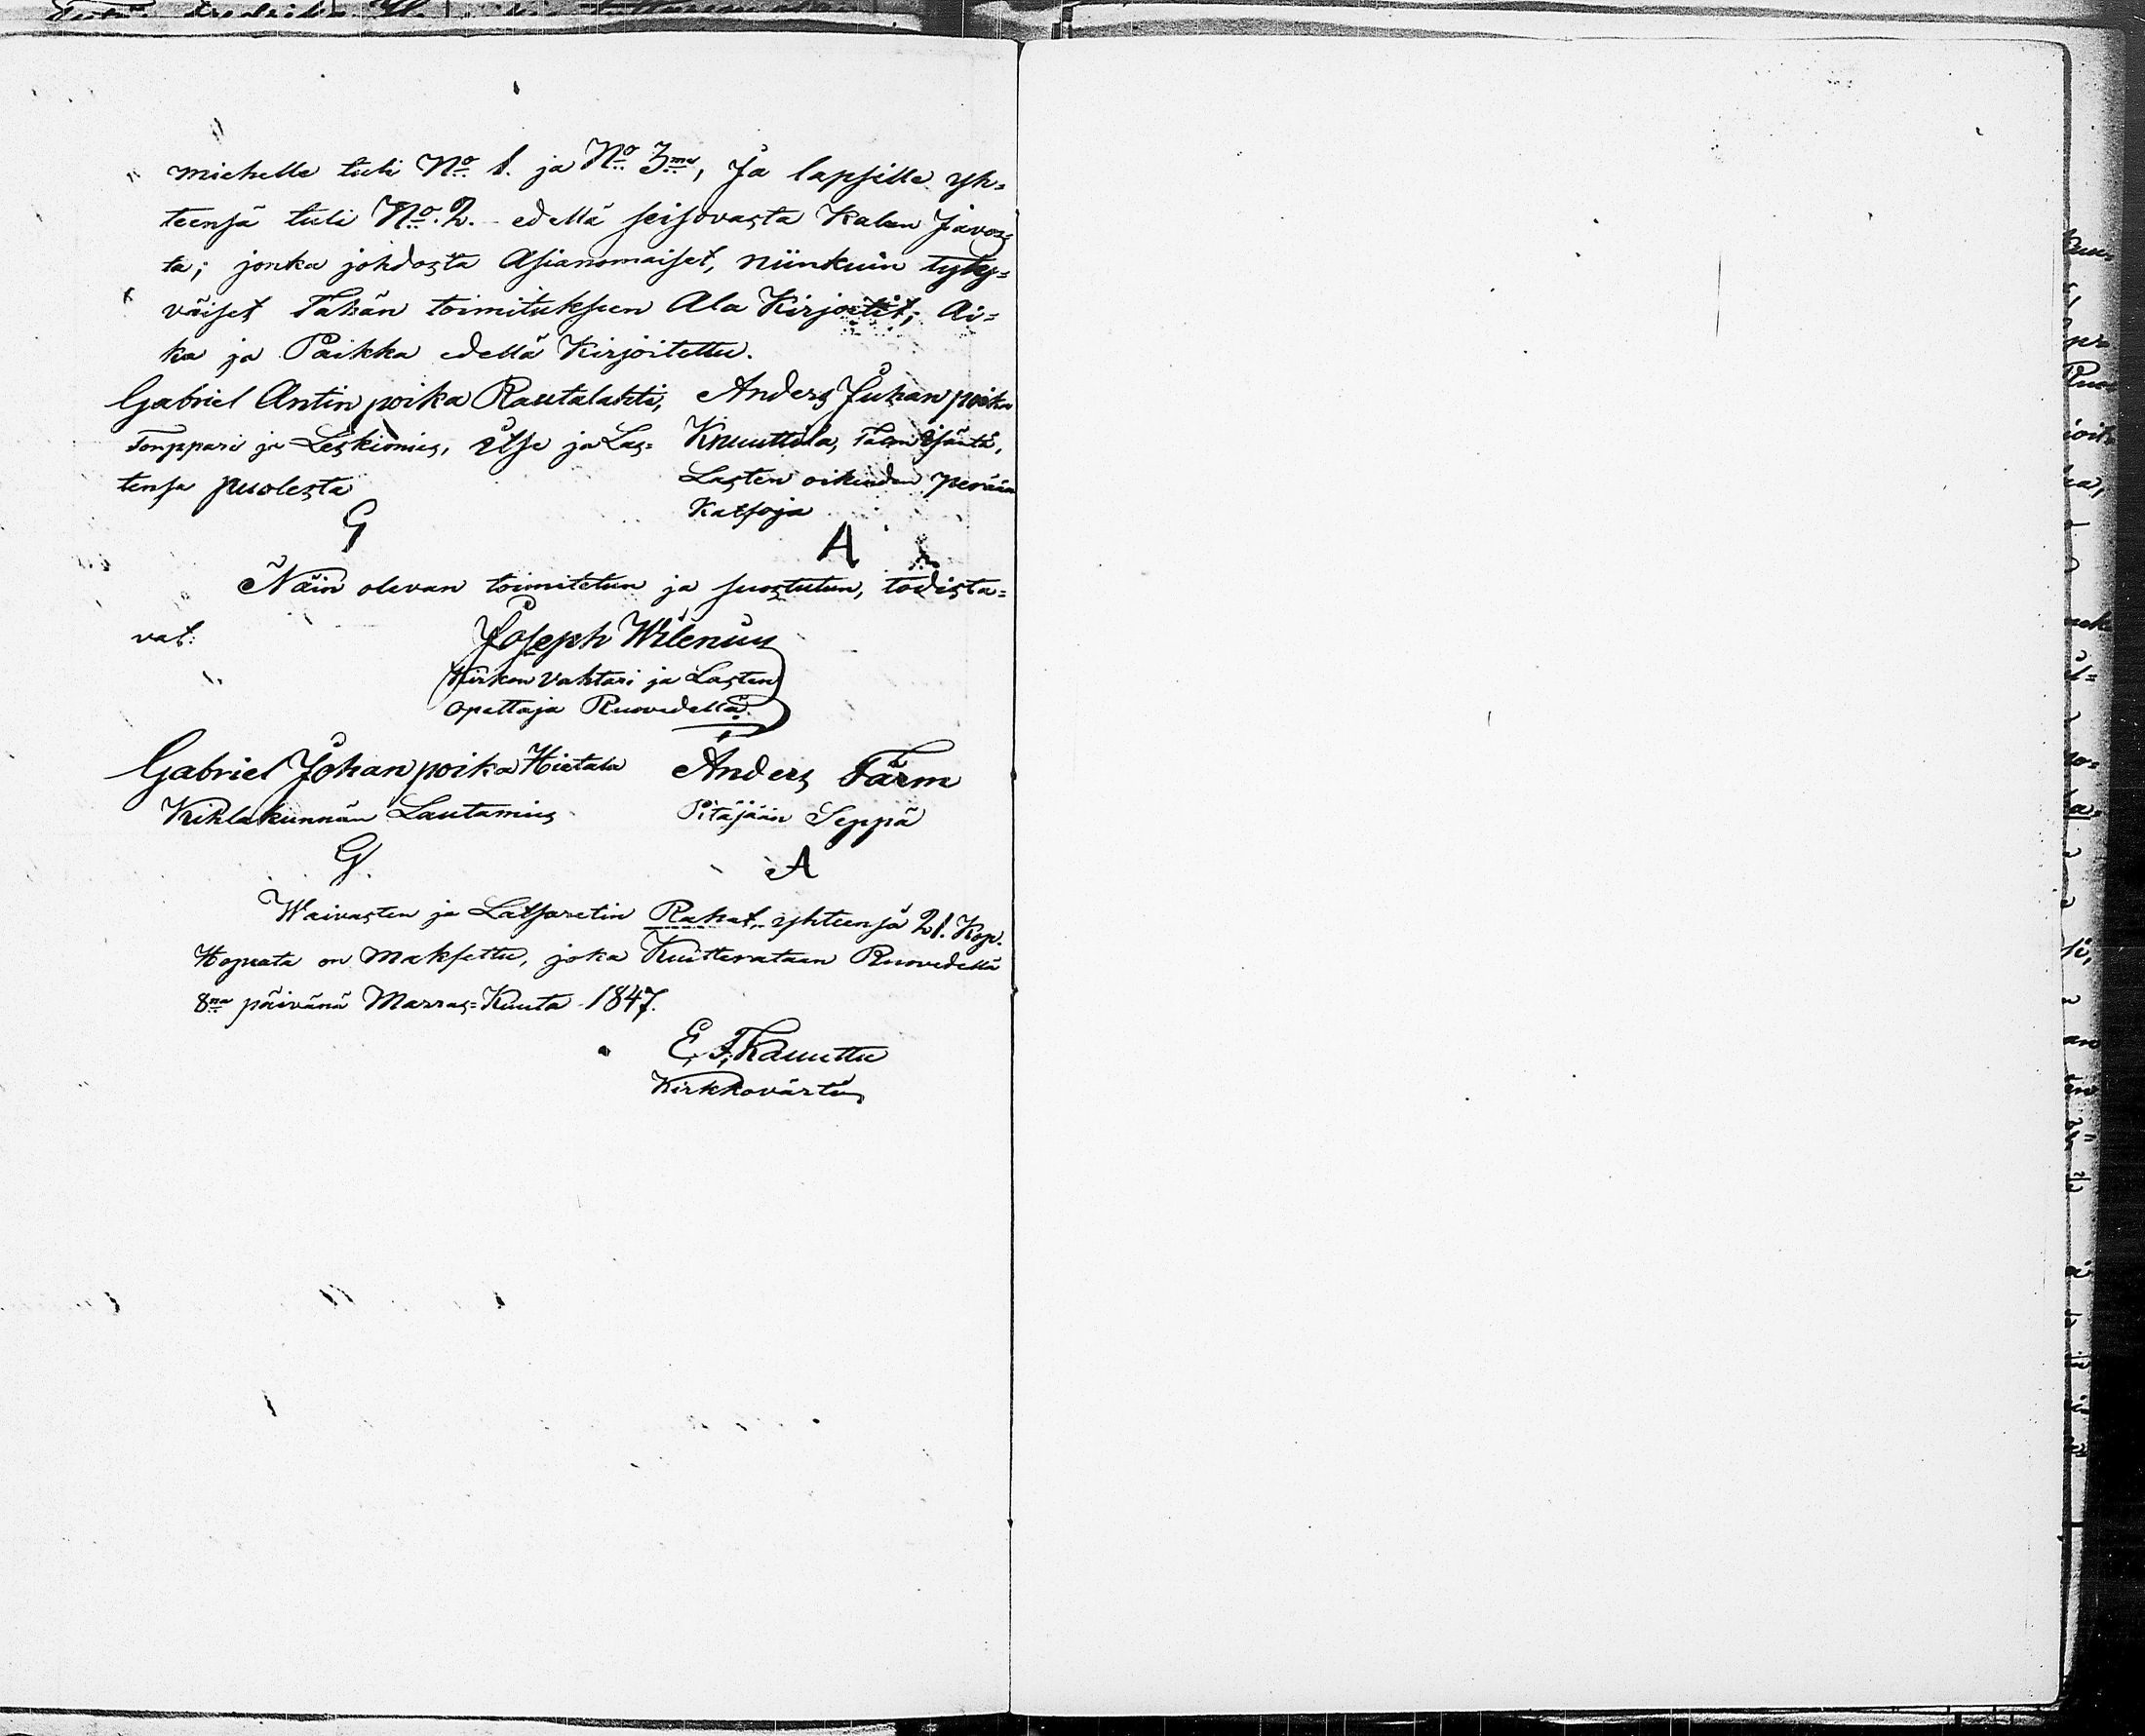 miehelle tuli No. 1. ja No. 3me, Ja lapsille yh=
teensä tuli No. 2. edellä seisovasta Kalun Javos=
ta; jonka johdosta Asianomaiset, niinkuin tyty=
väiset Tähän toimitukseen Ala Kirjoitit; Ai=
ka ja Paikka edellä Kirjoitettu.
Gabriel Antinpoika Rautalahti,
Torppari ja Leskimies, Itse ja Las=
tensa puolesta
G
Anders Juhanpoika
Knuuttila, Talon Isäntä,
Lasten oikeuden perään
Katsoja
A
Näin olevan toimitetun ja suostutun, todista=
vat:
Joseph Wilenius
Kirkon Vahtari ja Lasten
opettaja Ruovedellä.
Gabriel Johanpoika Hietala
Kihlakunnan Lautamies
G.
Anders Färm
Pitäjään Seppä
A
Waivasten ja Latsaretin Rahat, yhteensä 21. Kop.
Hopeata on Maksettu, joka Kuitterataan Ruovedellä
8na päivänä Marras=Kuuta 1847.
Kirkkovärti